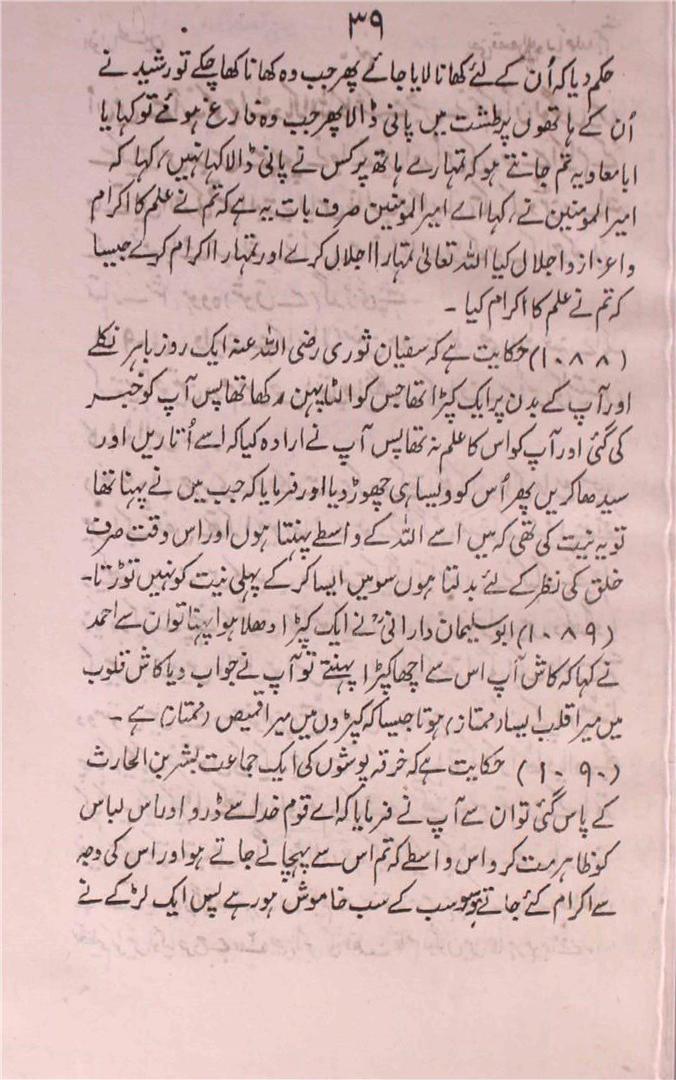 ۳۹
حکم دیا کہ اُن کے لئے کھانا لایا جائے پھر جب وہ کھانا کھا چکے تو رشید نے
اُن کے ہاتھوں پر طشت میں پانی ڈالا پھر جب وہ فارغ ہوئے تو کہا یا
ابا معاویہ تم جانتے ہو کہ تمہارے ہاتھ پر کس نے پانی ڈالا کہا نہیں، کہا کہ
امیر المومنین نے، کہا اے امیر المومنین صرف بات یہ ہے کہ تم نے علم کا اکرام
و اعزاز و اجلال کیا اللہ تعالیٰ تمہارا اجلال کرے اور تمہارا اکرام کرے جیسا
کہ تم نے علم کا اکرام کیا ۔
(۱۰۸۸) حکایت ہے کہ سفیان ثوری رضی اللہ عنہ ایک روز باہر نکلے
اور آپ کے بدن پر ایک کپڑا تھا جس کو الٹا پہن رکھا تھا پس آپ کو خبر
کی گئی اور آپ کو اس کا علم نہ تھا پس آپ نے ارادہ کیا کہ اسے اُتاریں اور
سیدھا کریں پھر اُس کو ویسا ہی چھوڑ دیا اور فرمایا کہ جب میں نے پہنا تھا
تو یہ نیت کی تھی کہ میں اسے اللہ کے واسطے پہنتا ہوں اور اس وقت صرف
خلق کی نظر کے لئے بدلتا ہوں سو میں ایسا کر کے پہلی نیت کو نہیں توڑتا۔
(۱۰۸۹) ابو سلیمان دارانیؒ نے ایک کپڑا دھلا ہوا پہنا تو ان سے احمد
نے کہا کہ کاش آپ اس سے اچھا کپڑا پہنتے تو آپ نے جواب دیا کاش قلوب
میں میرا قلب ایسا (ممتاز) ہوتا جیسا کہ کپڑوں میں میرا قمیص (ممتاز) ہے ۔
(۱۰۹۰) حکایت ہے کہ خرقہ پوشوں کی ایک جماعت بشر بن الحارث
کے پاس گئی تو ان سے آپ نے فرمایا کہ اے قوم خدا سے ڈرو اور اس لباس
کو ظاہر مت کرو اس واسطے کہ تم اس سے پہچانے جاتے ہو اور اس کی وجہ
سے اکرام کئے جاتے ہو سو سب کے سب خاموش ہو رہے پس ایک لڑکے نے